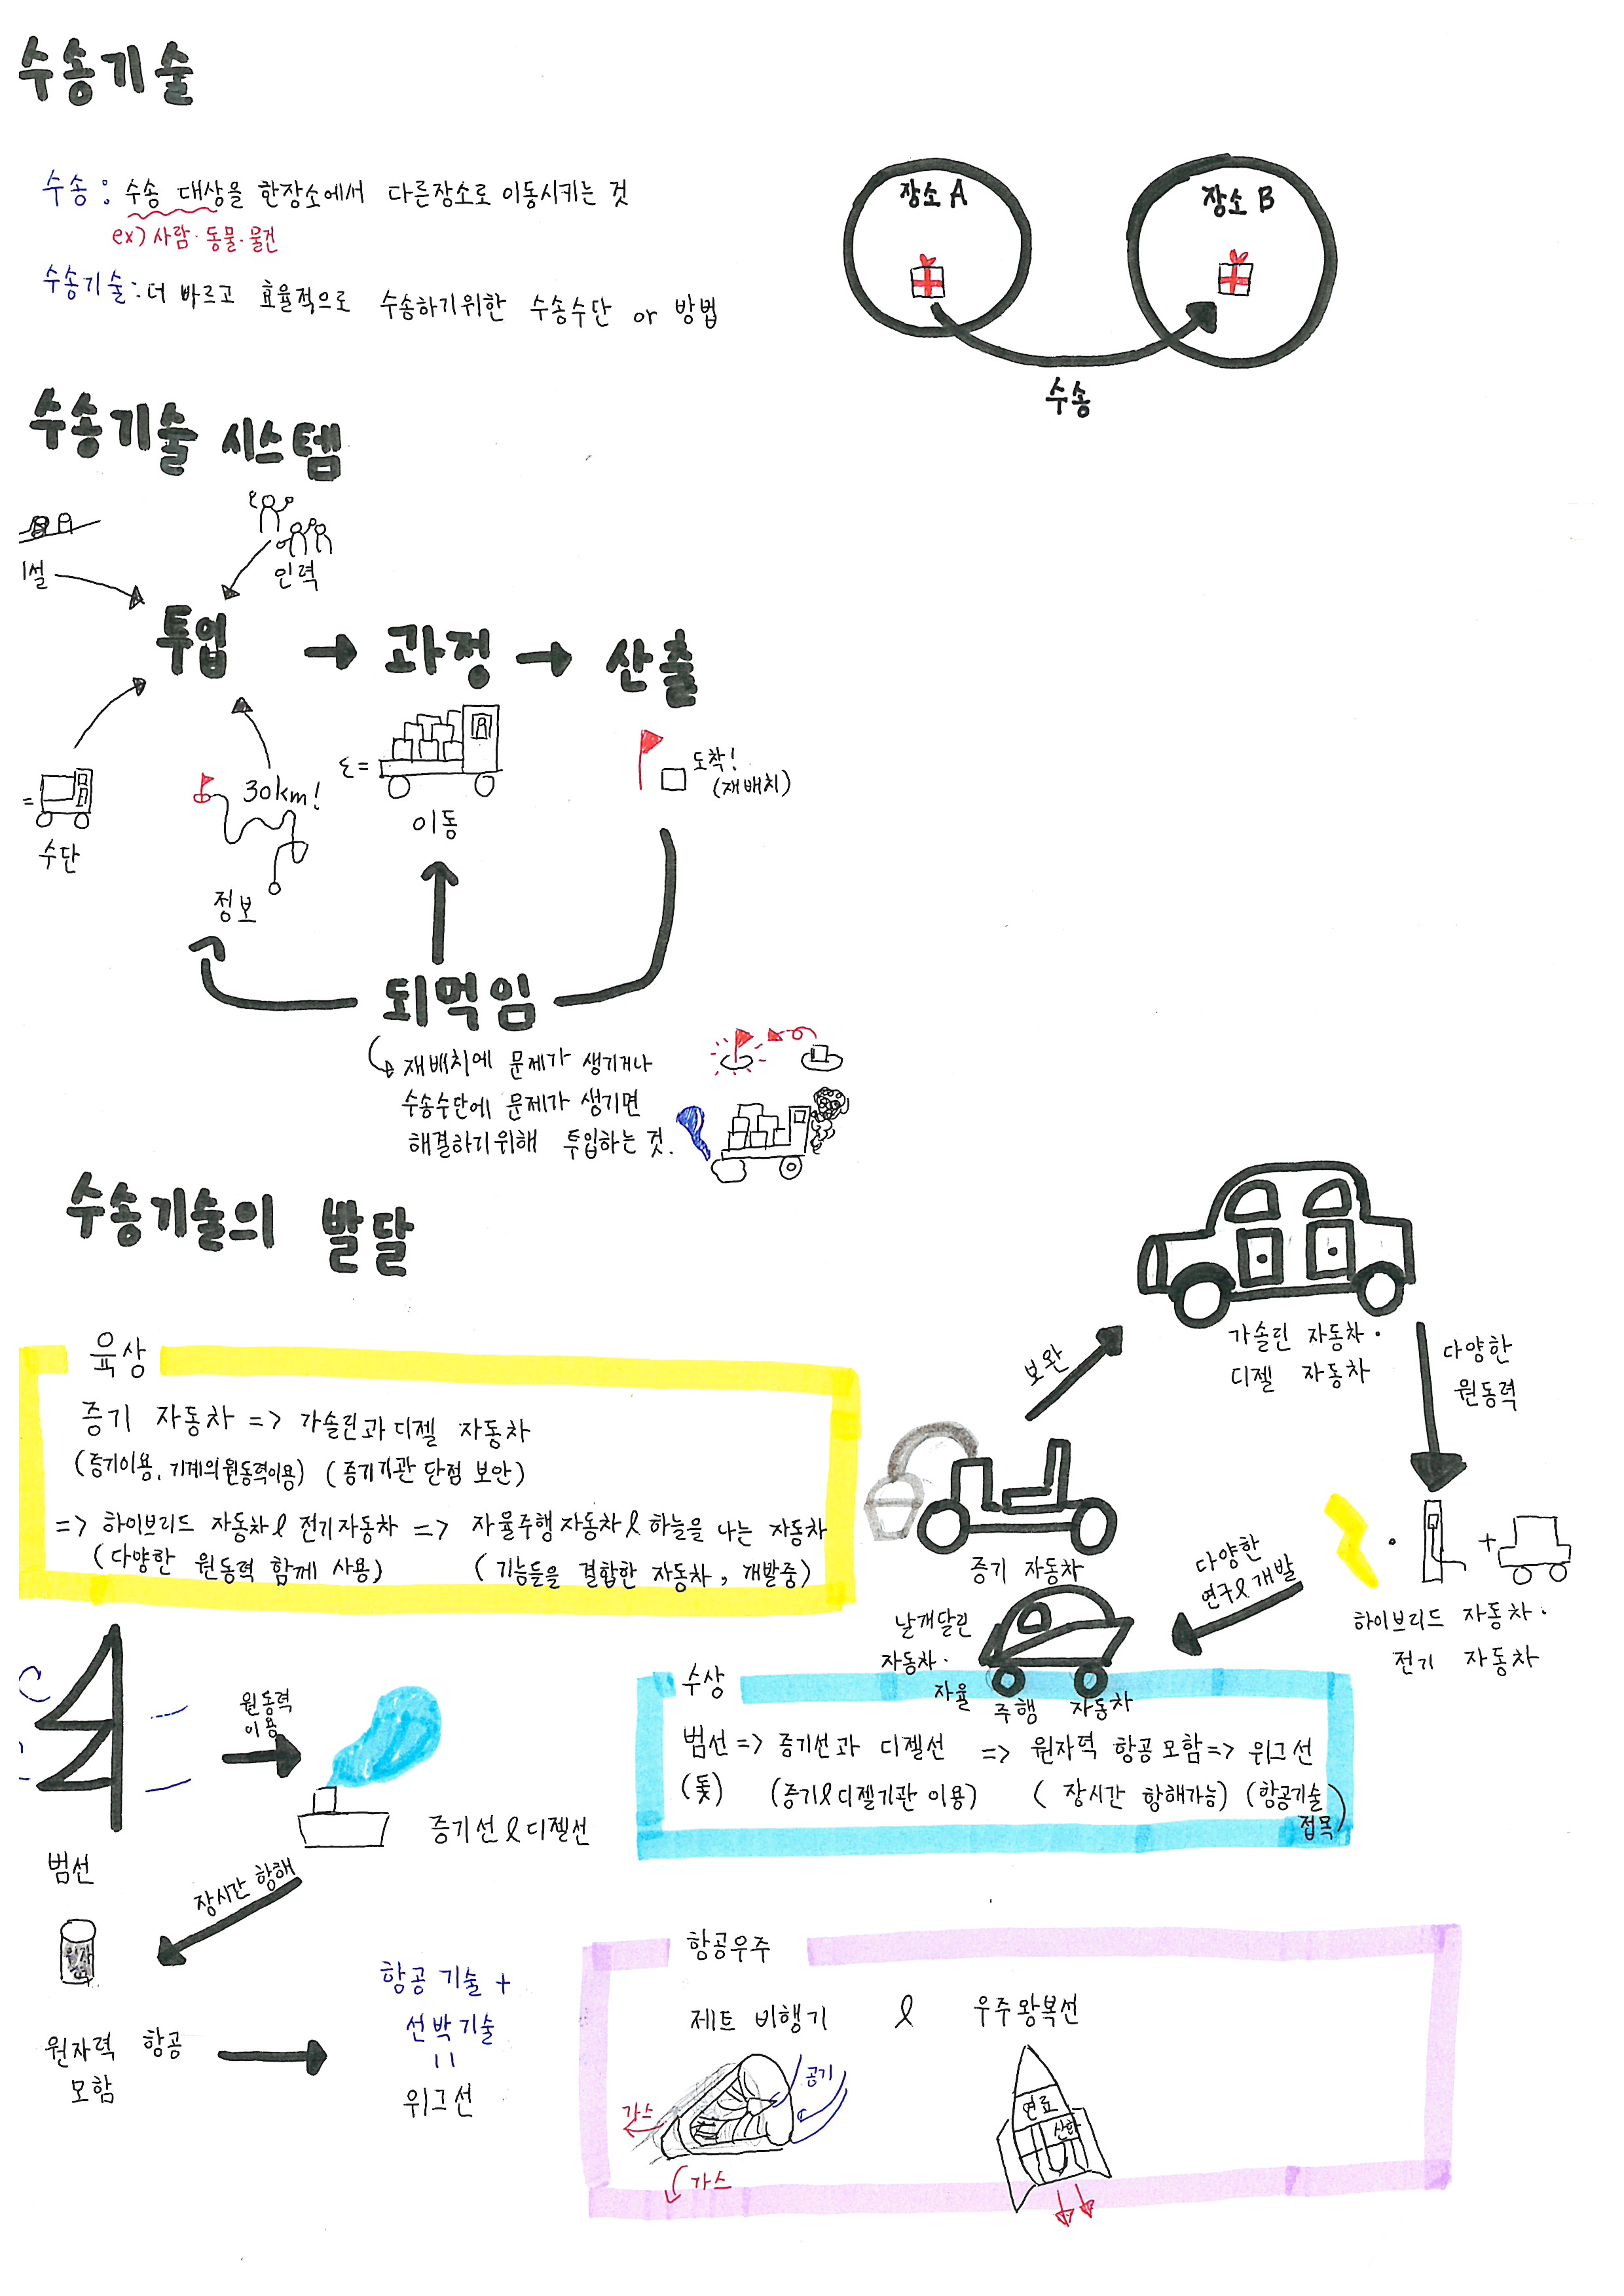 수송기술
수송 : 수송 대상을 한장소에서 다른장소로 이동시키는 것
ex) 사람·동물·물건
수송기술 : 더 빠르고 효율적으로 수송하기위한 수송수단 or 방법
장소 A
장소 B
수송
수송기술 시스템
인력
투입 → 과정 → 산출
30km!
도착!
(재배치)
이동
수단
정보
되먹임
재배치에 문제가 생기거나
수송수단에 문제가 생기면
해결하기위해 투입하는 것.
수송기술의 발달
육상
증기 자동차 => 가솔린과 디젤 자동차
(증기이용, 기계의 원동력이용) (증기기관 단점 보안)
=> 하이브리드 자동차 & 전기자동차 => 자율주행자동차 & 하늘을 나는 자동차
(다양한 원동력 함께 사용) (기능들을 결합한 자동차, 개발중)
보완
가솔린 자동차·
디젤 자동차
다양한
원동력
증기 자동차
다양한
연구 & 개발
하이브리드 자동차·
전기 자동차
날개달린
자동차·
자율 주행 자동차
원동력
이용
범선
증기선 & 디젤선
장시간 항해
원자력 항공
모함
항공 기술 +
선박기술
=
위그선
수상
범선 => 증기선과 디젤선 => 원자력 항공모함 => 위그선
(돛) (증기 & 디젤기관 이용) (장시간 항해가능) (항공기술
접목)
항공우주
제트 비행기 & 우주왕복선
공기
가스
가스
연료
산화